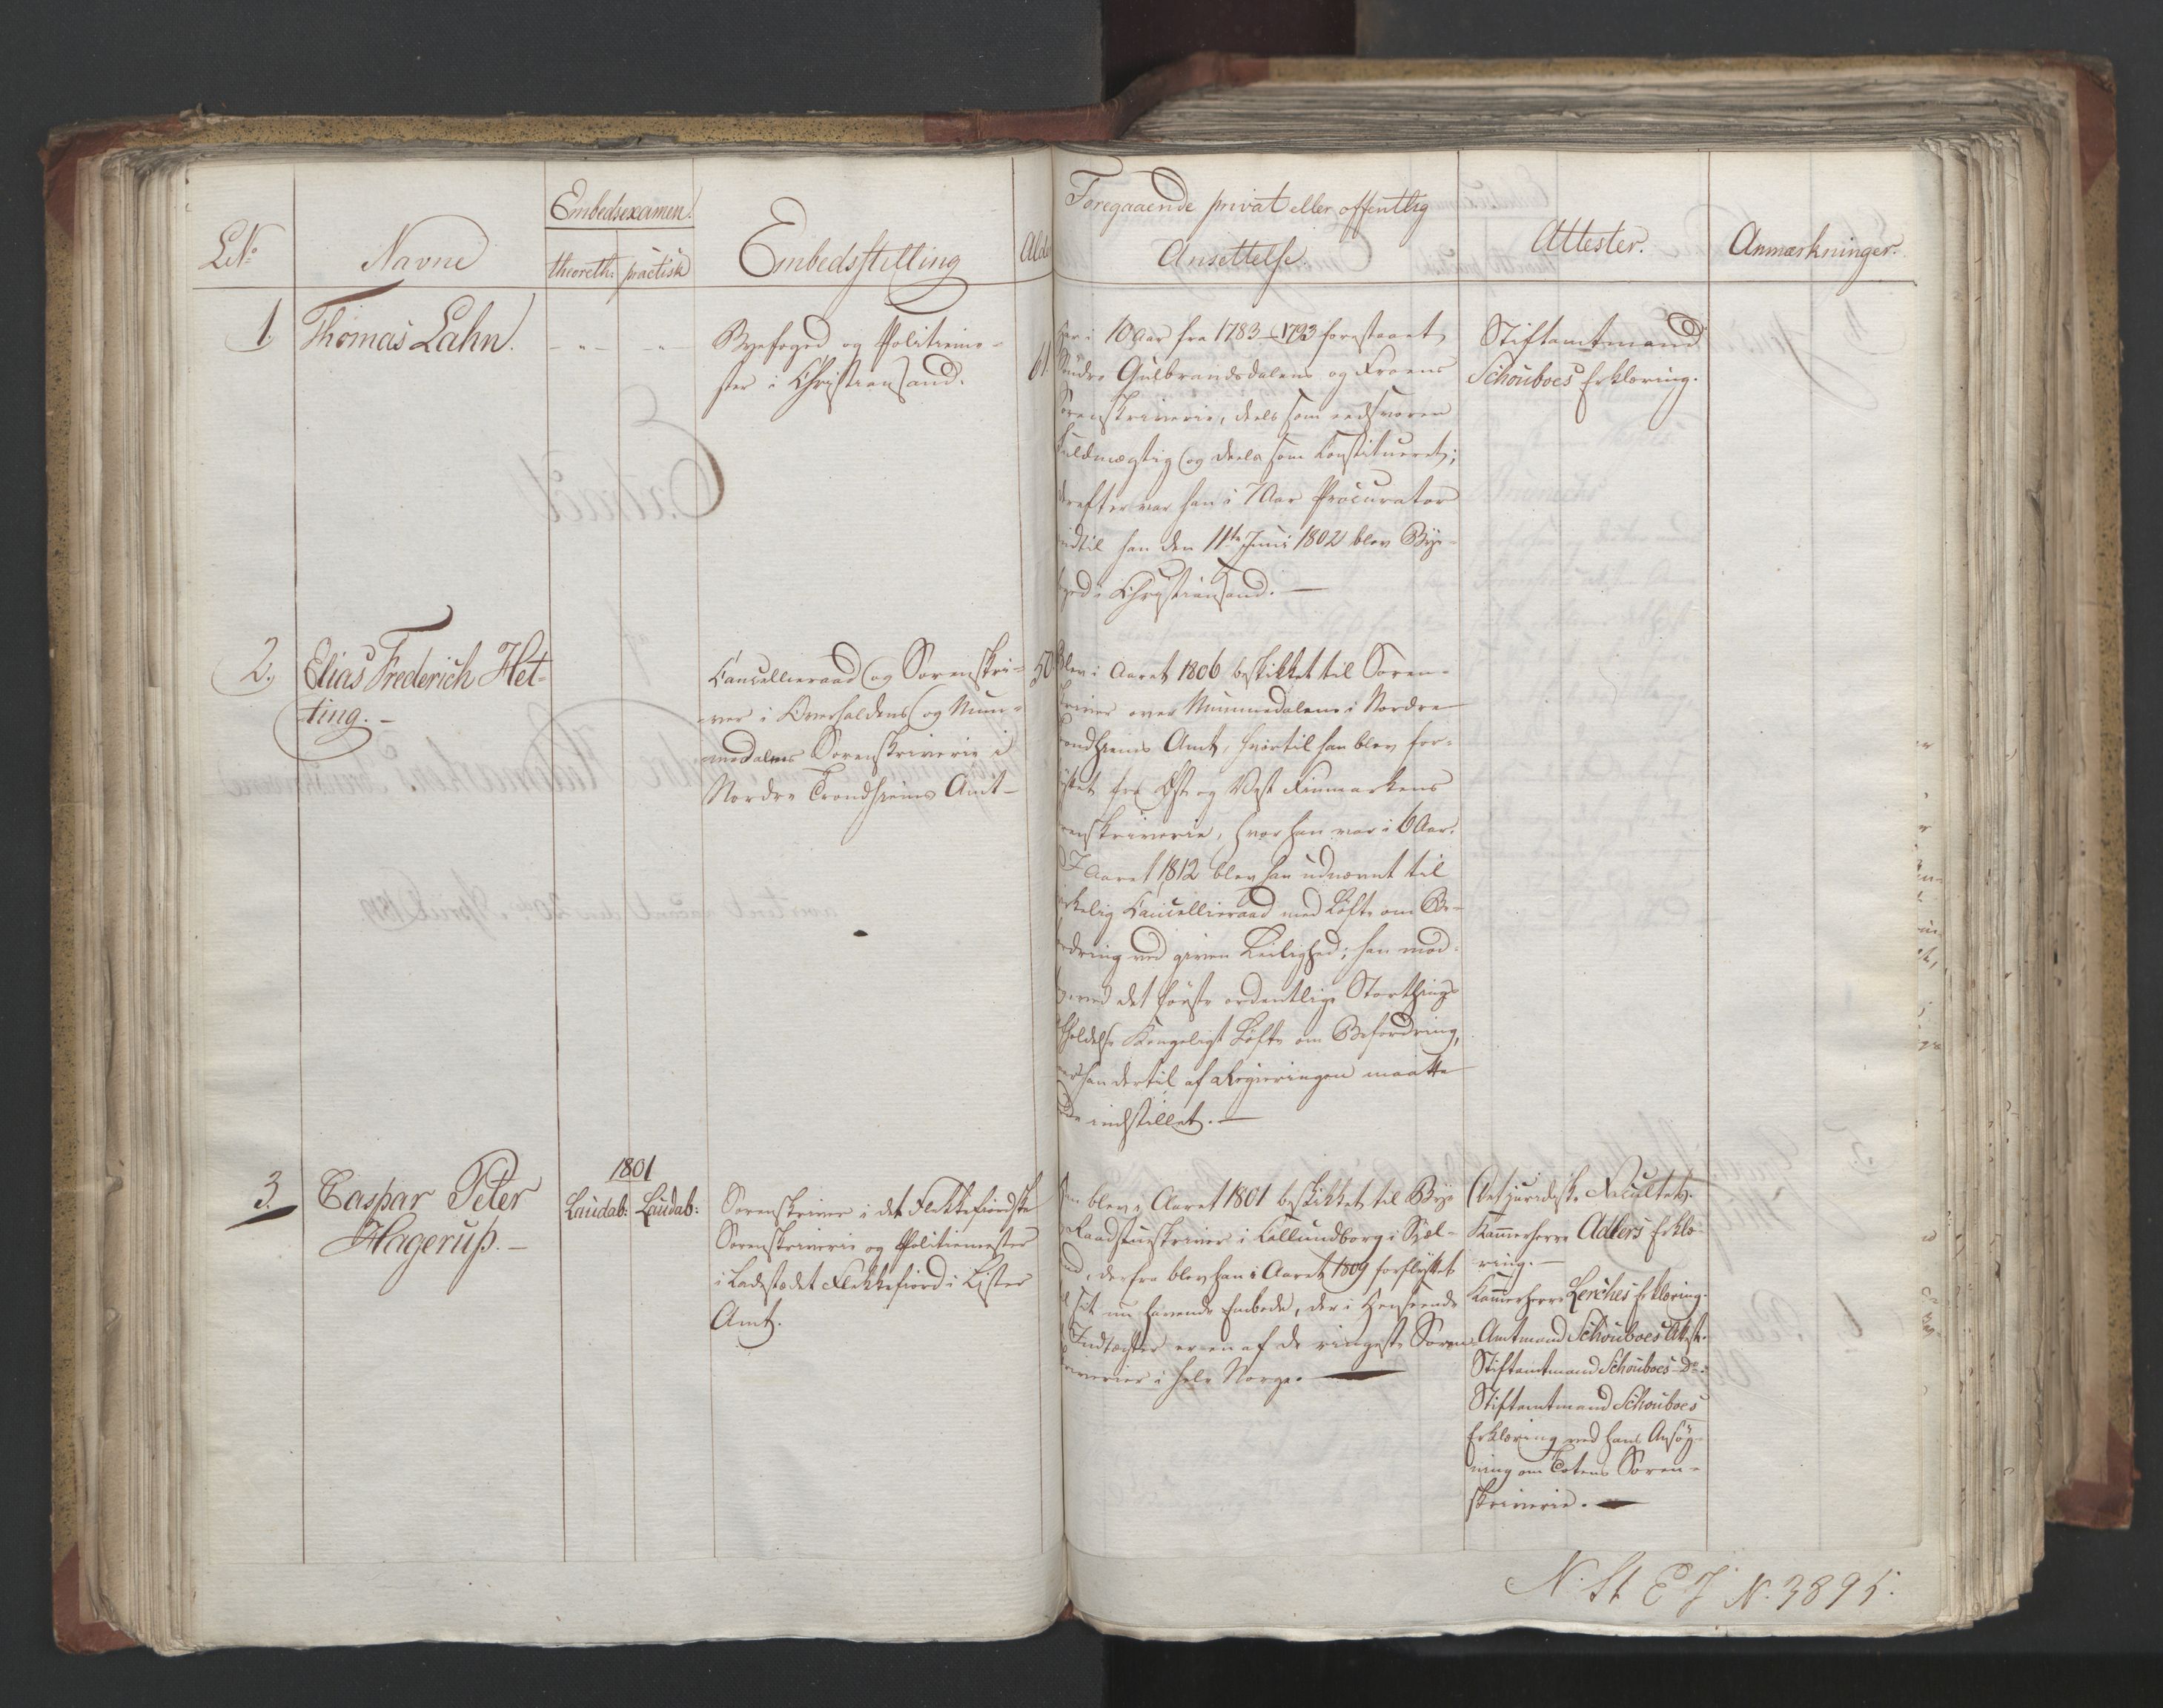 Embedsexamen.
LNo
Navne
theoreth:
practisk
Embedsstilling
Alder
Foregaaende privat eller offentlig
Ansettelse.
Attester.
Anmærkninger.
1.
Thomas Lahn.
Byefoged og Politieme-
ster i Christiansand.
61.
Har i 10 Aar fra 1783-1793 forestaaet
Søndre Gulbrandsdalens og Froens
Sorenskriverie, deels som eedsvoren
Fuldmægtig og deels som Constitueret;
derefter var han i 7 Aar Procurator
indtil han den 11te Juni 1802 blev Bye-
foged i Christiansand. —
Stiftamtmand
Schouboes Erklæring.
2.
Elias Frederich Het-
ting. -
Cancellieraad og Sorenskri-
ver i Overhaldens og Num-
medalens Sorenskriverie i
Nordre Trondhiems Amt -
50
Blev i Aaret 1806 beskikket til Soren-
skriver over Nummedalens i Nordre
Trondhiems Amt, hvortil han blev for-
flyttet fra Øst og Vest Finmarkens
Sorenskriverie, hvor han var i 6 Aar.
I Aaret 1812 blev han udnævnt til
virkelig Cancellieraad med Løfte om Be-
fordring ved given Leilighed; han mod-
ved det første ordentlige Storthings
Afholdelse Kongeligt Løfte om Befordring,
naar han dertil af Regieringen maatte
vorde indstillet. —
3.
Caspar Peter
Hagerup. -
1801
Laudab: Laudab:
Sorenskriver i det Flekkefiordske
Sorenskriverie og Politiemester
i Ladestædet Flekkefiord i Lister
Amt.
Han blev i Aaret 1801 beskikket til Bye
og Raadstueskriver i Callundborg i Sæl-
land, derfra blev han i Aaret 1809 forflyttet
til sit nu havende Embede, der i Henseende
til Indtægter er en af de ringeste Soren-
skriverier i hele Norge. —
Det juridiske Facultets.
Kammerherre Adlers Erklæ-
ring. —
Kammerherre Lerches Erklæring.
Amtmand Schouboes Attest.
Stiftamtmand Schouboes Do:
Stiftamtmand Schouboes
Erklæring ved hans Ansøg-
ning om Totens Soren-
skriverie. —
N. St E J N. 3895.